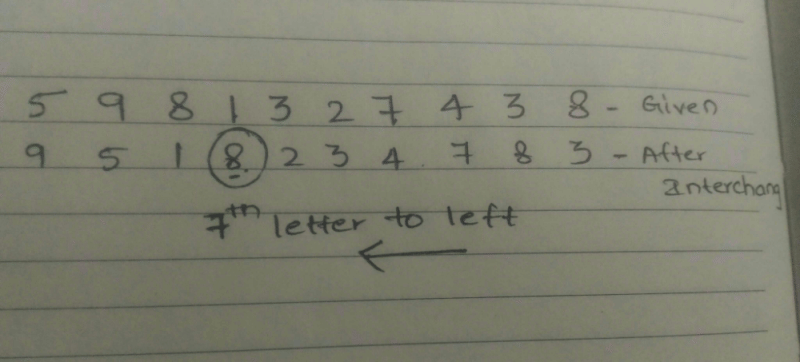 5 9 8 1 3 2 7 4 3 8 - Given
9 5 1 8 2 3 4 7 8 3 - After
Interchang
7th letter to left